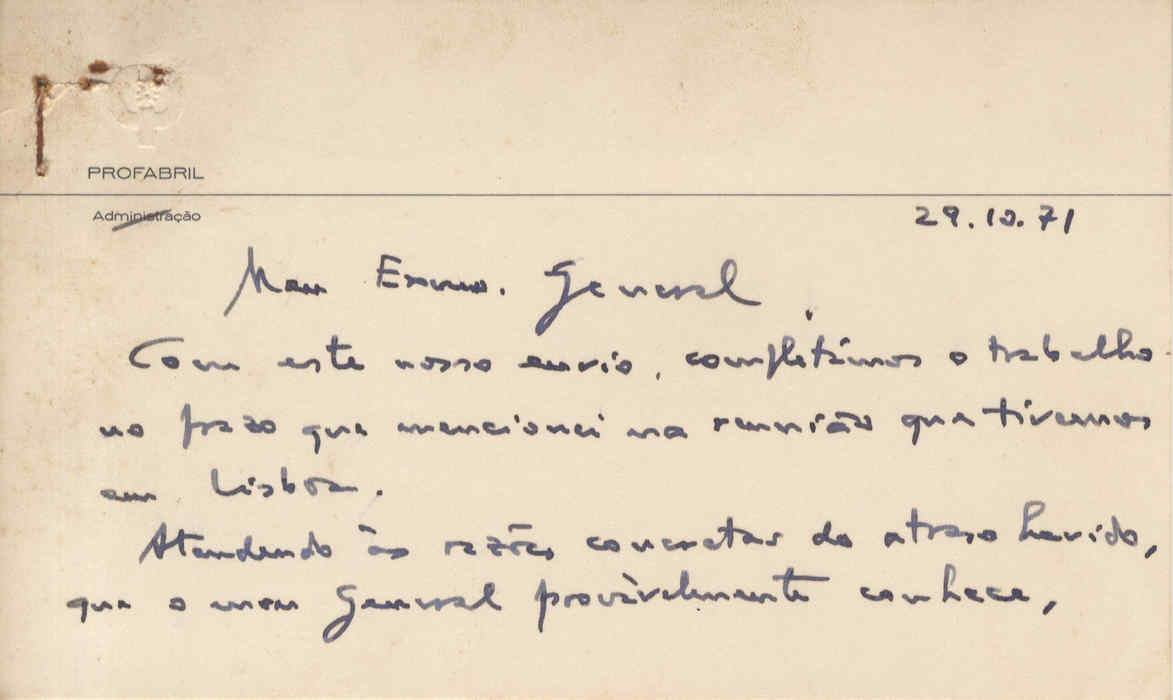 PROFABRIL
Administração
29.10.71
Meu Exmo. General
Com este nosso envio, completámos o trabalho
no prazo que mencionei na reunião que tivemos
em Lisboa.
Atendendo às razões concretas do atraso havido,
que o meu General provàvelmente conhece,